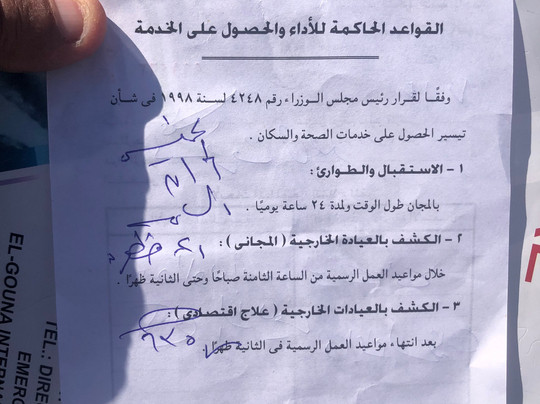 القواعد الحاكمة للأداء والحصول على الخدمة
وفقًا لقرار رئيس مجلس الوزراء رقم ٤٢٤٨ لسنة ١٩٩٨ فى شأن
تيسير الحصول على خدمات الصحة والسكان .
١ - الاستقبال والطوارئ :
بالمجان طول الوقت ولمدة ٢٤ ساعة يوميًا .
٢- الكشف بالعيادة الخارجية ( المجانى ) :
خلال مواعيد العمل الرسمية من الساعة الثامنة صباحًا وحتى الثانية ظهرًا .
٣ - الكشف بالعيادات الخارجية ( علاج اقتصادى ) :
بعد انتهاء مواعيد العمل الرسمية فى الثانية ظهرًا .
EL-GOUNA INTERNA
TEL.: DIRE
EMERG